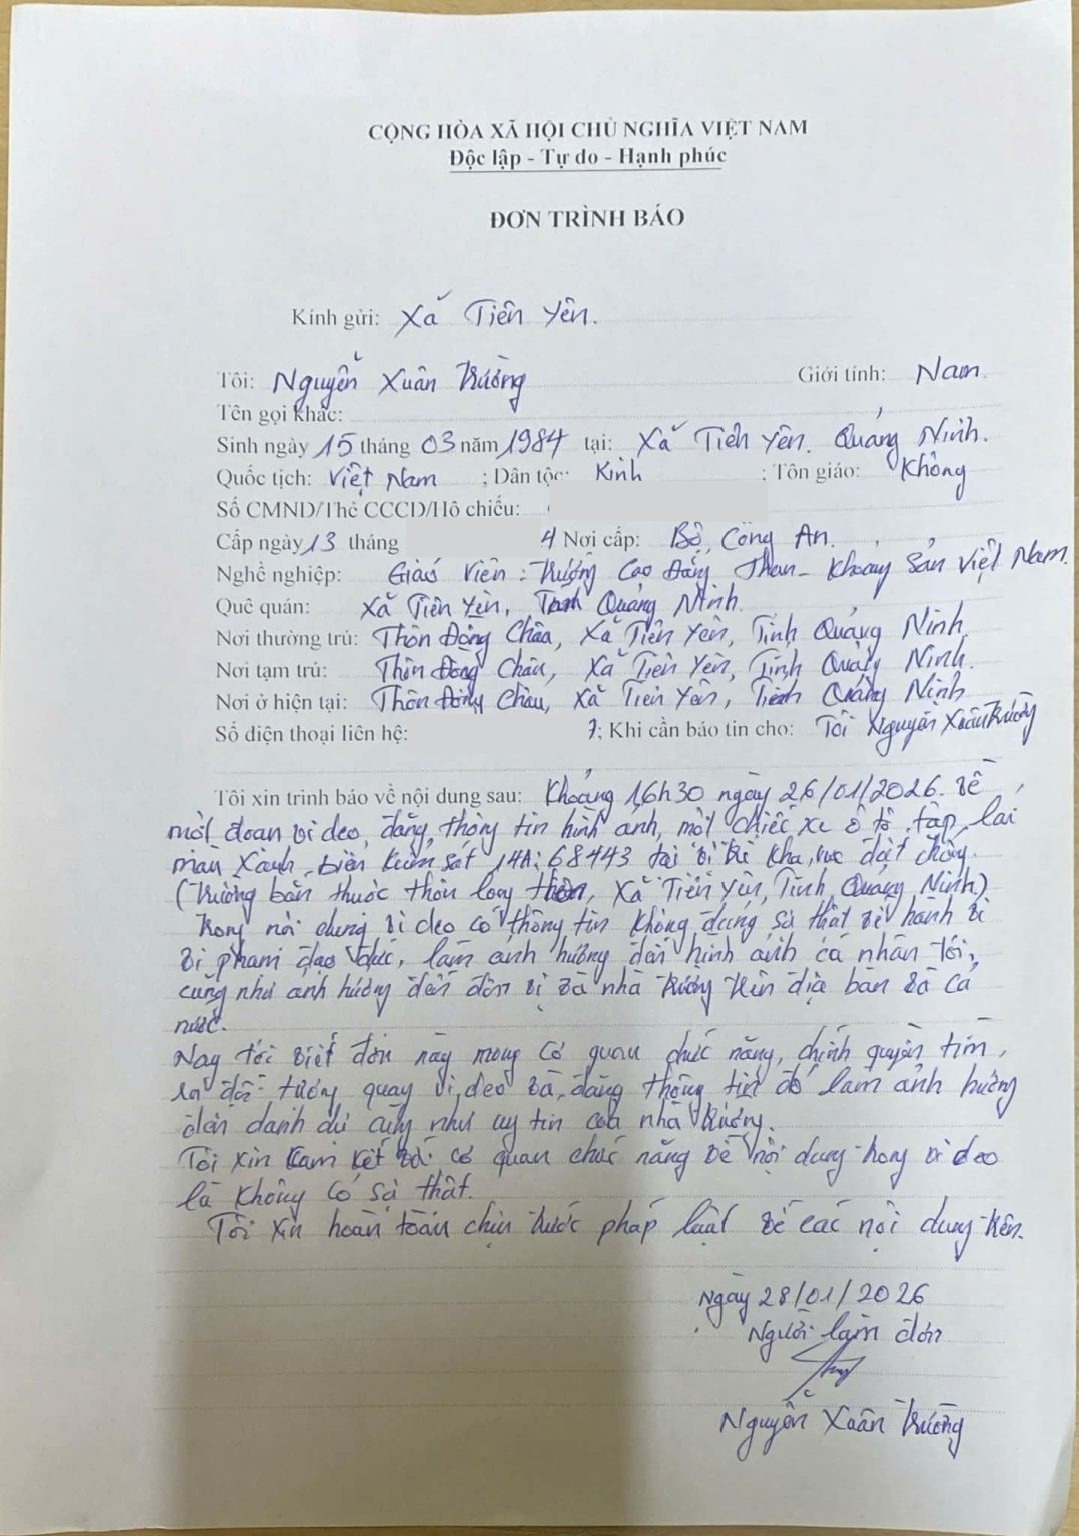 CỘNG HÒA XÃ HỘI CHỦ NGHĨA VIỆT NAM
Độc lập - Tự do - Hạnh phúc
ĐƠN TRÌNH BÁO
Kính gửi: Xã Tiên Yên.
Tôi: Nguyễn Xuân Trường Giới tính: Nam
Tên gọi khác:
Sinh ngày 15 tháng 03 năm 1984 tại: Xã Tiên Yên. Quảng Ninh.
Quốc tịch: Việt Nam ; Dân tộc: Kinh ; Tôn giáo: Không
Số CMND/Thẻ CCCD/Hộ chiếu:
Cấp ngày 13 tháng 4 Nơi cấp: Bộ Công An.
Nghề nghiệp: Giáo Viên: Trường Cao Đẳng Than - Khoáng Sản Việt Nam.
Quê quán: Xã Tiên Yên, Tỉnh Quảng Ninh
Nơi thường trú: Thôn Đông Châu, Xã Tiên Yên, Tỉnh Quảng Ninh
Nơi tạm trú: Thôn Đông Châu, Xã Tiên Yên, Tỉnh Quảng Ninh.
Nơi ở hiện tại: Thôn Đông Châu, Xã Tiên Yên, Tỉnh Quảng Ninh
Số điện thoại liên hệ: 7; Khi cần báo tin cho: Tôi Nguyễn Xuân Trường
Tôi xin trình báo về nội dung sau: Khoảng 16h30 ngày 26/01/2026. Về
một đoan vi deo, đăng thông tin hình ảnh, một chiếc xe ô tô tập lái
màu xanh biển kiểm sát 14A: 68443 tại vị trí khu vực đất trống.
(Trường bắn thuộc thôn long thôn, Xã Tiên Yên, Tỉnh Quảng Ninh)
Trong nội dung vi deo có thông tin không đúng sự thật về hành vi
vi phạm đạo đức, làm ảnh hưởng đến hình ảnh cá nhân tôi,
cũng như ảnh hưởng đến đơn vị và nhà trường trên địa bàn và cả
nước.
Nay tôi viết đơn này mong cơ quan chức năng, chính quyền tìm
ra đối tượng quay vi deo và đăng thông tin đó làm ảnh hưởng
đến danh dự cũng như uy tín của nhà trường.
Tôi xin cam kết với cơ quan chức năng về nội dung trong vi deo
là không có sự thật.
Tôi xin hoàn toàn chịu trước pháp luật về các nội dung trên.
Ngày 28/01/2026
Người làm đơn
Nguyễn Xuân Trường